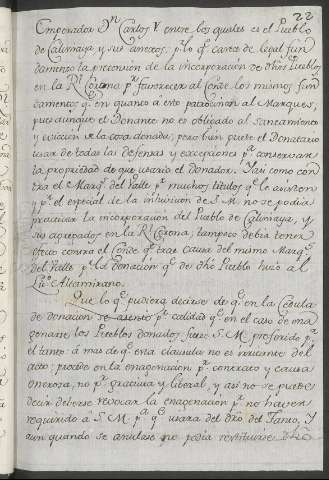 22
Emperador Dn Carlos V entre los quales es el Pueblo
de Calimaya y sus anexos; p.r lo q.e carece de legal fun
damento la pretencion de la incorporacion de dhos Pueblos
en la Rl Corona p.r favorecer al Conde los mismos fun
damentos q.e en quanto a esto patrocinan al Marques,
pues aunque el Donante no es obligado al saneamiento
y eviccion de la cosa donada; pero bien puede el Donatario
usar de todas las defensas y excepciones p.a conservar
la propiedad de que usaria el donador. Y asi como con
tra el Marq.s del Valle p.r muchos titulos q.e le asisten
y p.r el especial de la intuicion de S.M. no se podia
practicar la incorporacion del Pueblo de Calimaya, y
sus agregados en la Rl Corona, tampoco debia tener
efecto contra el Conde q.e trae causa del mismo Marq.s
del Valle p.r la Donacion q.e de dho Pueblo hizo al
Lic.o Altamirano.
Que lo q.e pudiera decirse de q.e en la Cedula
de donacion se asento p.r calidad q.e en el caso de ena
genarse los Pueblos donados fuese S.M. preferido p.r
el tanto: á mas de q.e esta clausula no es
acto: procede en la enagenacion p.r contrato y causa
onerosa, no p.r gratuita y liberal, y asi no se puede
decir deberse revocar la enagenacion p.r no haver
requirido á S.M. p.a q.e usara del dro del Tanto, Y
aun quando se anulase no podia restituirse dho